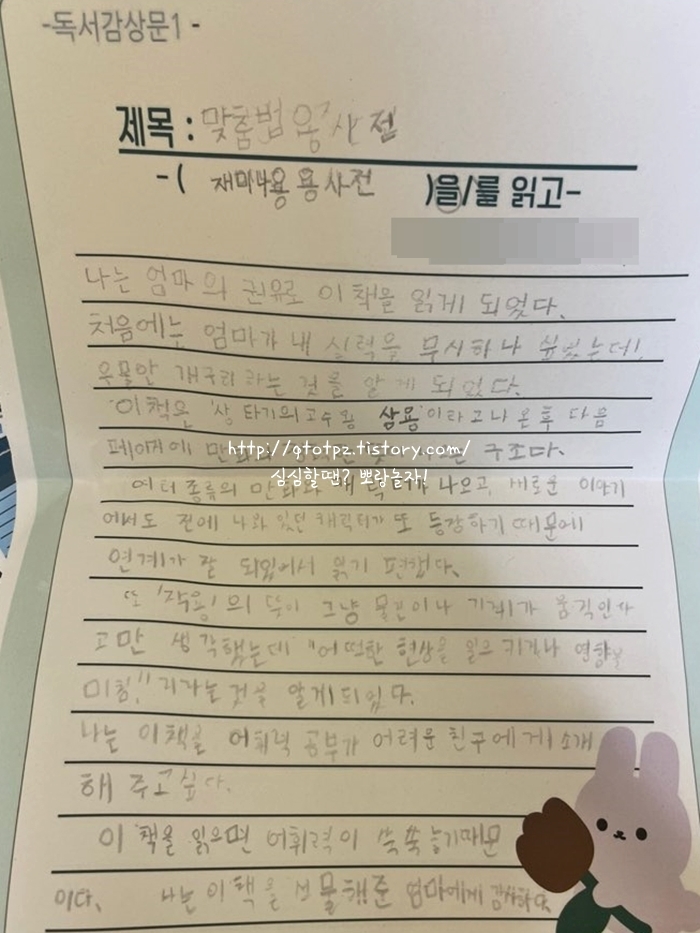 -독서감상문1 -
제목 : 맞춤법 용사전
-( 재미나용 용사전 )을/를 읽고-
나는 엄마의 권유로 이 책을 읽게 되었다.
처음에는 엄마가 내 실력을 무시하나 싶었는데,
우물안 개구리라는 것을 알게 되었다.
이책은 '상 타기의 고수용 삼용'이라고 나온 후 다음
페이지에 만화와 구조다.
http://qtotpz.tistory.com/
심심할땐? 뽀랑놀자!
여러 종류의 만화와 캐릭터가 나오고, 새로운 이야기
에서도 전에 나와 있던 캐릭터가 또 등장하기 때문에
연계가 잘 되있어서 읽기 편했다.
또 '작용'의 뜻이 그냥 물건이나 기계가 움직인다
고만 생각했는데 "어떠한 현상을 일으키거나 영향을
미침." 이라는 것을 알게되었다.
나는 이책을 어휘력 공부가 어려운 친구에게 소개
해 주고싶다.
이 책을 읽으면 어휘력이 쑥쑥 늘기때문
이다. 나는 이책을 선물해준 엄마에게 감사하다.